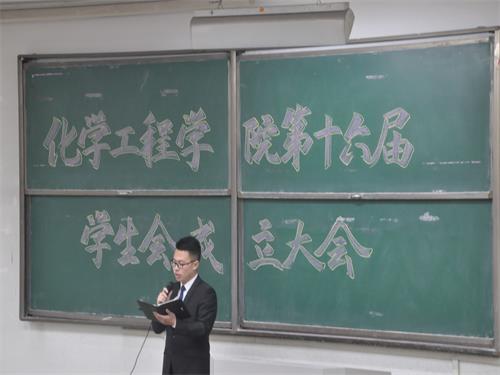 化学工程学院第十六届
学生会成立大会